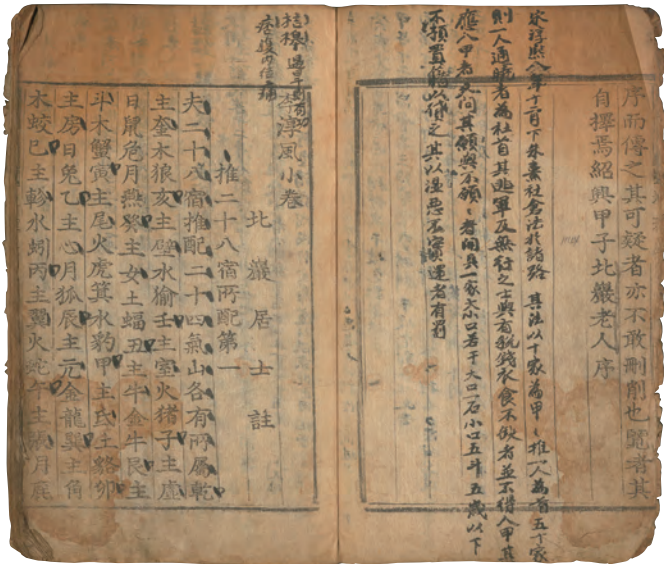 序而傳之其可疑者亦不敢刪削也覽者其
自擇焉紹興甲子北巖老人序
宋淳熙八年十二月下朱熹社倉法於諸路 其法以十家為甲〻推一人為首五十家
則一人通曉者為社首其逃軍及無行之士與有稅錢衣食不缺者並不得入甲其
應入甲者又問其願與不願〻者開具一家大小口若干大口一石小口五斗五歲以下
不預置籍以貸之其以濕惡不實還者有罰
桔梗
李淳風小卷
北巖居士註
推二十八宿所配第一
夫二十八宿推配二十四氣山各有所屬乾
主奎木狼亥主壁水㺄壬主室火猪子主虛
日鼠危月燕癸主女土蝠丑主牛金牛艮主
斗木蟹寅主尾火虎箕水豹甲主氐土貉卯
主房日兔乙主心月狐辰主元金龍巽主角
木蛟巳主軫水蚓丙主翼火蛇午主張月鹿